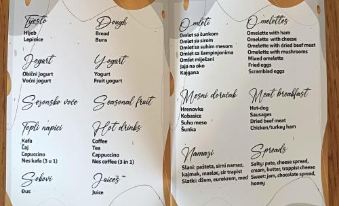 Tijesto
Hljeb
Lepinice
Jogurt
Obični jogurt
Voćni jogurt
Sezonsko voće
Topli napici
Kafa
Čaj
Cappuccino
Nes kafa (3 u 1)
Sokovi
Đus
Dough
Bread
Buns
Yogurt
Yogurt
Fruit yogurt
Seasonal fruit
Hot drinks
Coffee
Tea
Cappuccino
Nes coffee (3 in 1)
Juices
Juice
Omleti
Omlet sa šunkom
Omlet sa sirom
Omlet sa suhim mesom
Omlet sa šampinjonima
Omlet miješani
Jaja na oko
Kajgana
Mesni doručak
Hrenovka
Kobasice
Suho meso
Šunka
Namazi
Slani: pašteta, sirni namaz,
kajmak, maslac, sir trapist
Slatki: džem, eurokrem, med
Omelettes
Omelette with ham
Omelette with cheese
Omelette with dried beef meat
Omelette with mushrooms
Mixed omelette
Fried eggs
Scrambled eggs
Meat breakfast
Hot-dog
Sausages
Dried beef meat
Chicken/turkey ham
Spreads
Salty: pate, cheese spread,
cream, butter, trappist cheese
Sweet: jam, chocolate spread,
honey